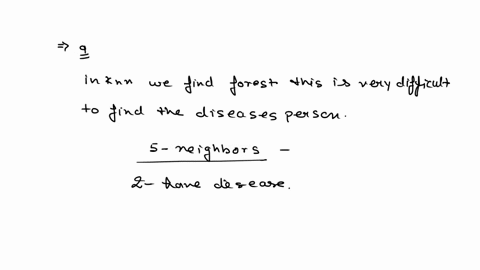 ⇒ q
in knn we find forest this is very difficult
to find the diseases person.
5 - neighbors -
2 - have desease.